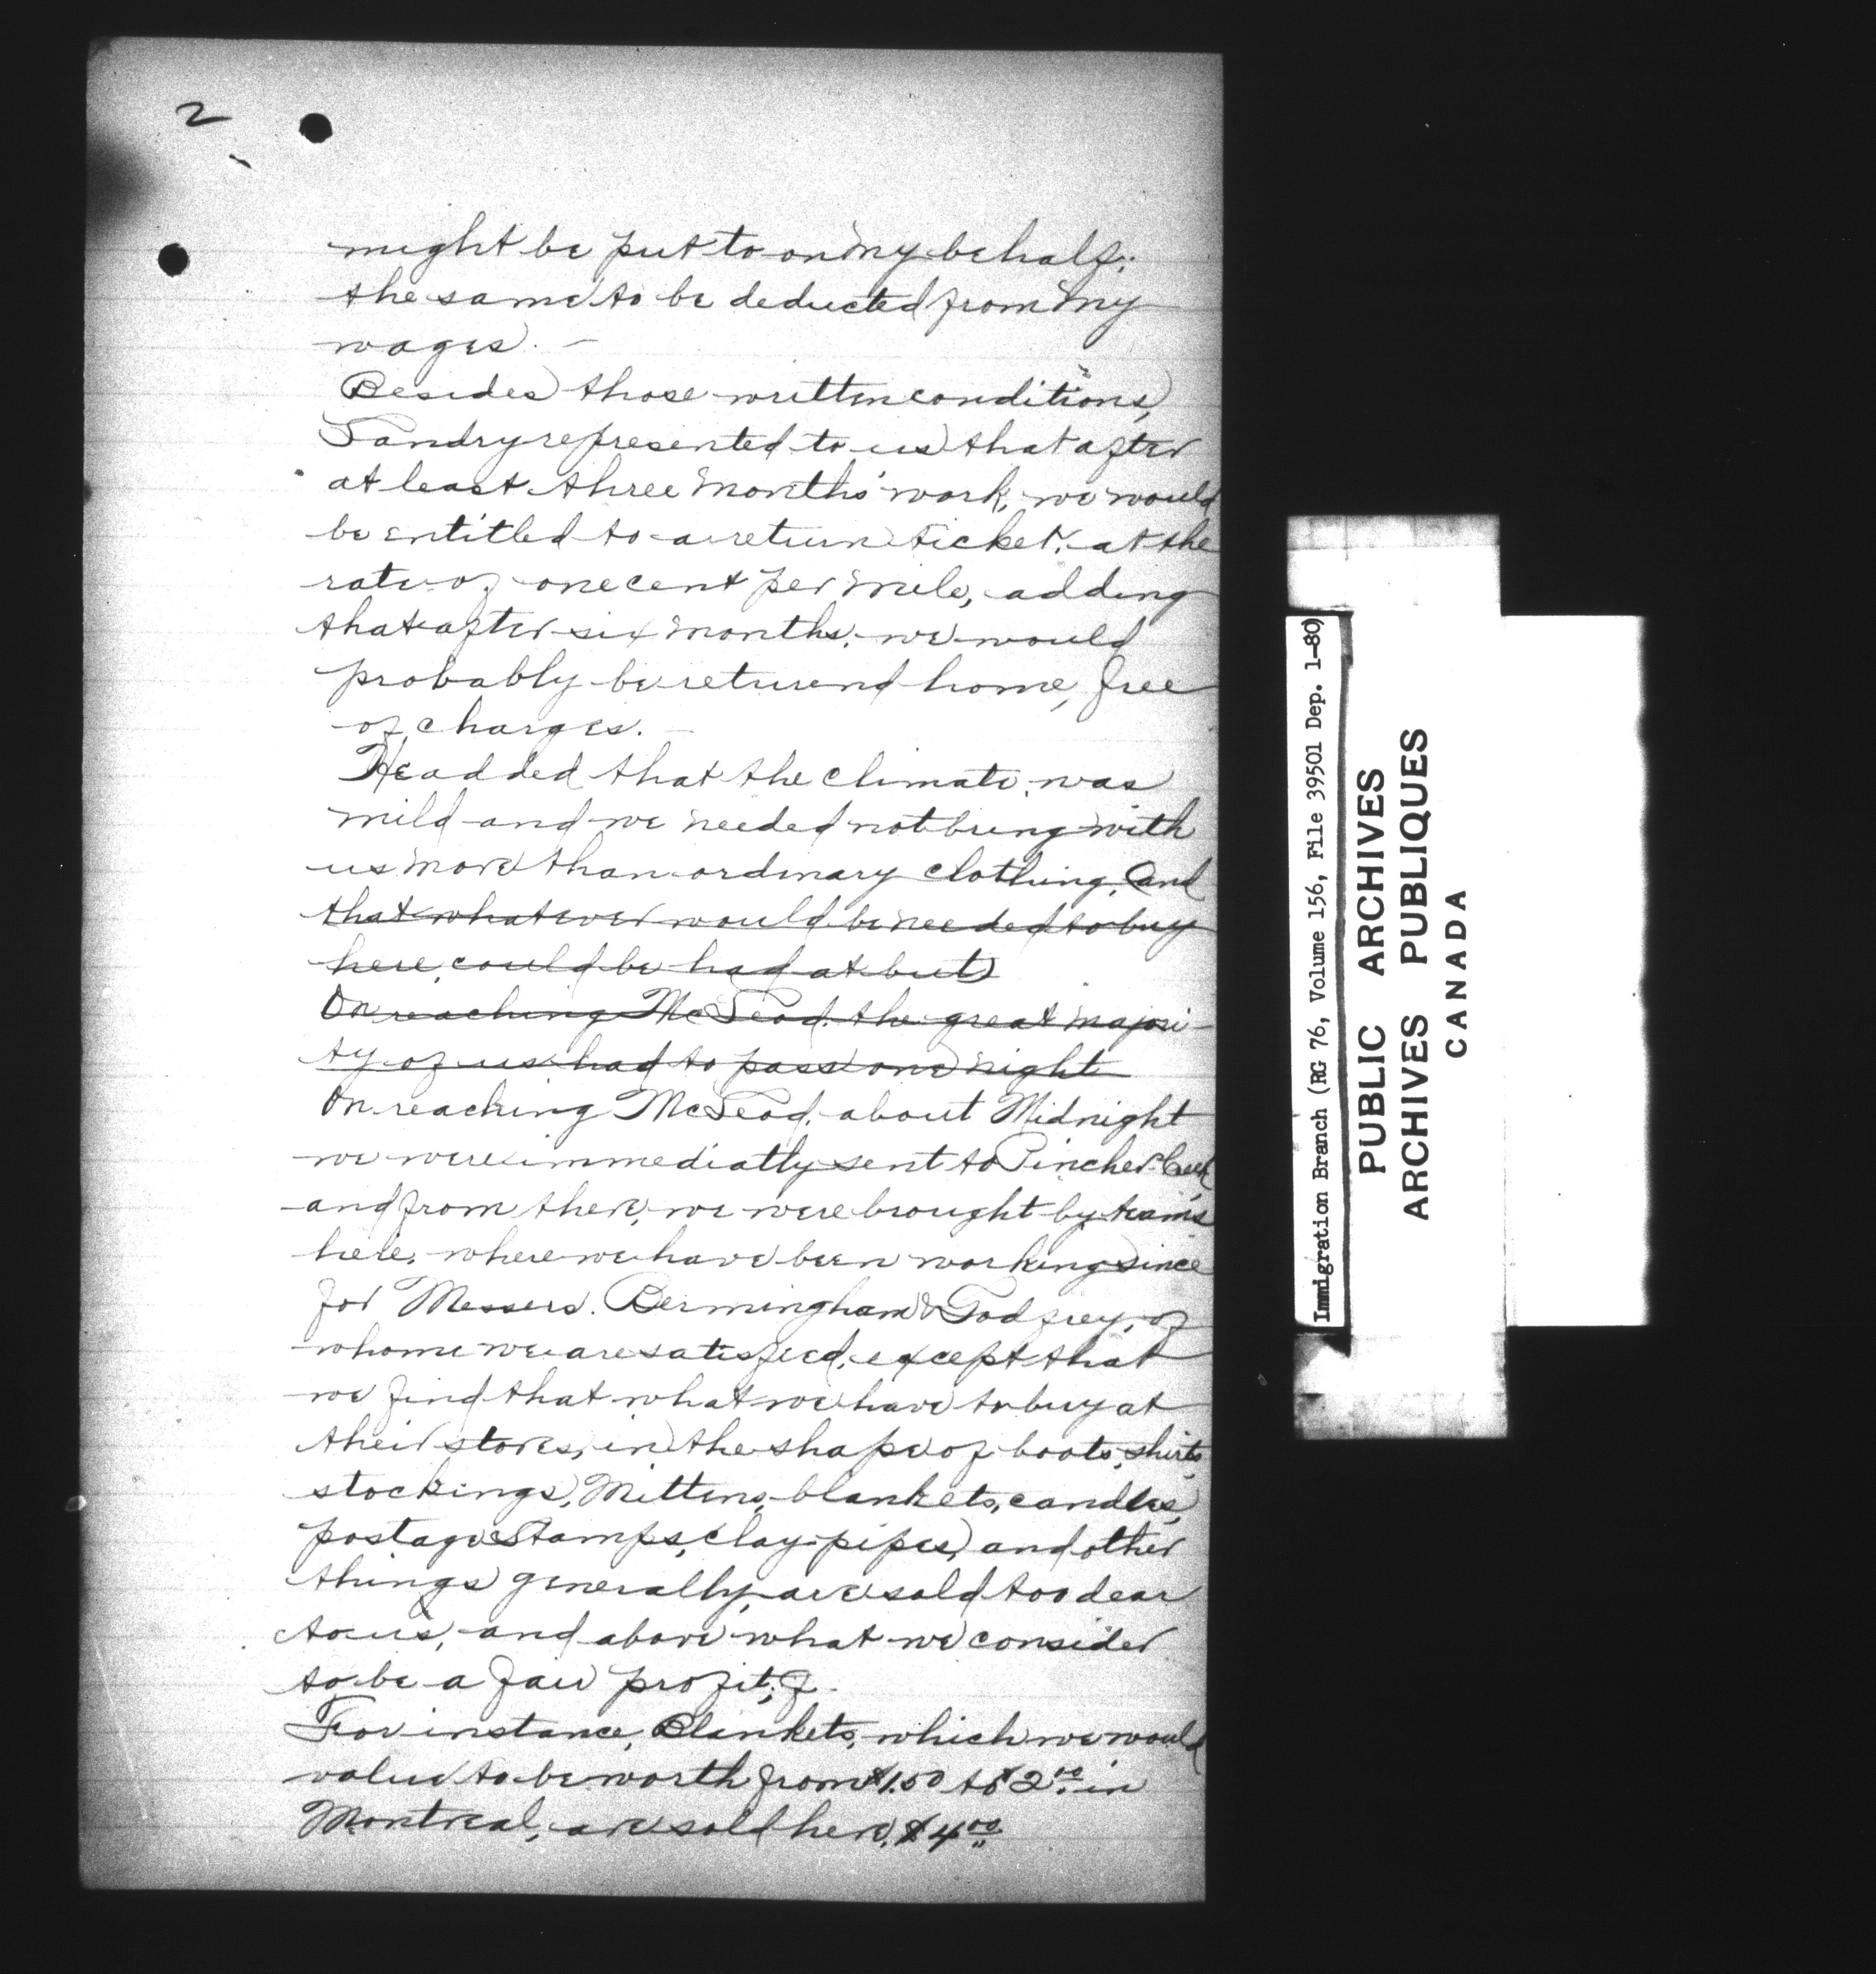 2
might be put to on my behalf;
the same to be deducted from my
wages. —
Besides those written conditions,
Tandry represented to us that after
at least three months' work, we would
be entitled to a return ticket, at the
rate of one cent per mile, adding
that after six months, we would
probably be returend home, free
of charges. —
He added that the climate, was
mild and we needed not bring with
us more than ordinary clothing, and
that whatever would be needed to buy
here, could be had at but
On reaching McLeod, the great majori-
ty of us had to pass one night
On reaching McLeod, about Midnight
we were immediatly sent to Pincher Creek
and from there, we were brought by teams
here, where we have been working since
for Messers. Bermingham & Godfrey, of
whome we are satisfied, except that
we find that what we have to buy at
their stores, in the shape of boots, shirts,
stockings, Mittens, blankets, candles,
postage Stamps, clay-pipes, and other
things generally, are sold too dear
to us, and above what we consider
to be a fair profit;
For instance, Blankets, which we would
value to be worth from $1.50 to $2.00 in
Montreal, are sold here, $4.00
Immigration Branch (RG 76, Volume 156, File 39501 Dep. 1-80)
PUBLIC ARCHIVES
ARCHIVES PUBLIQUES
CANADA